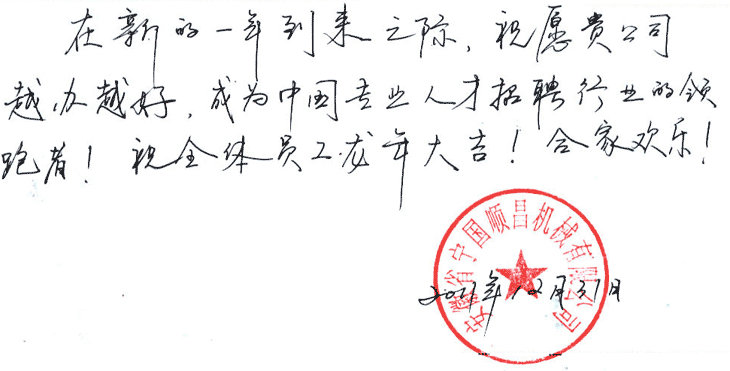 在新的一年到来之际，祝愿贵公司
越办越好，成为中国专业人才招聘行业的领
跑者！祝全体员工龙年大吉！合家欢乐！
安徽省宁国顺昌机械有限公司
2011年12月31日